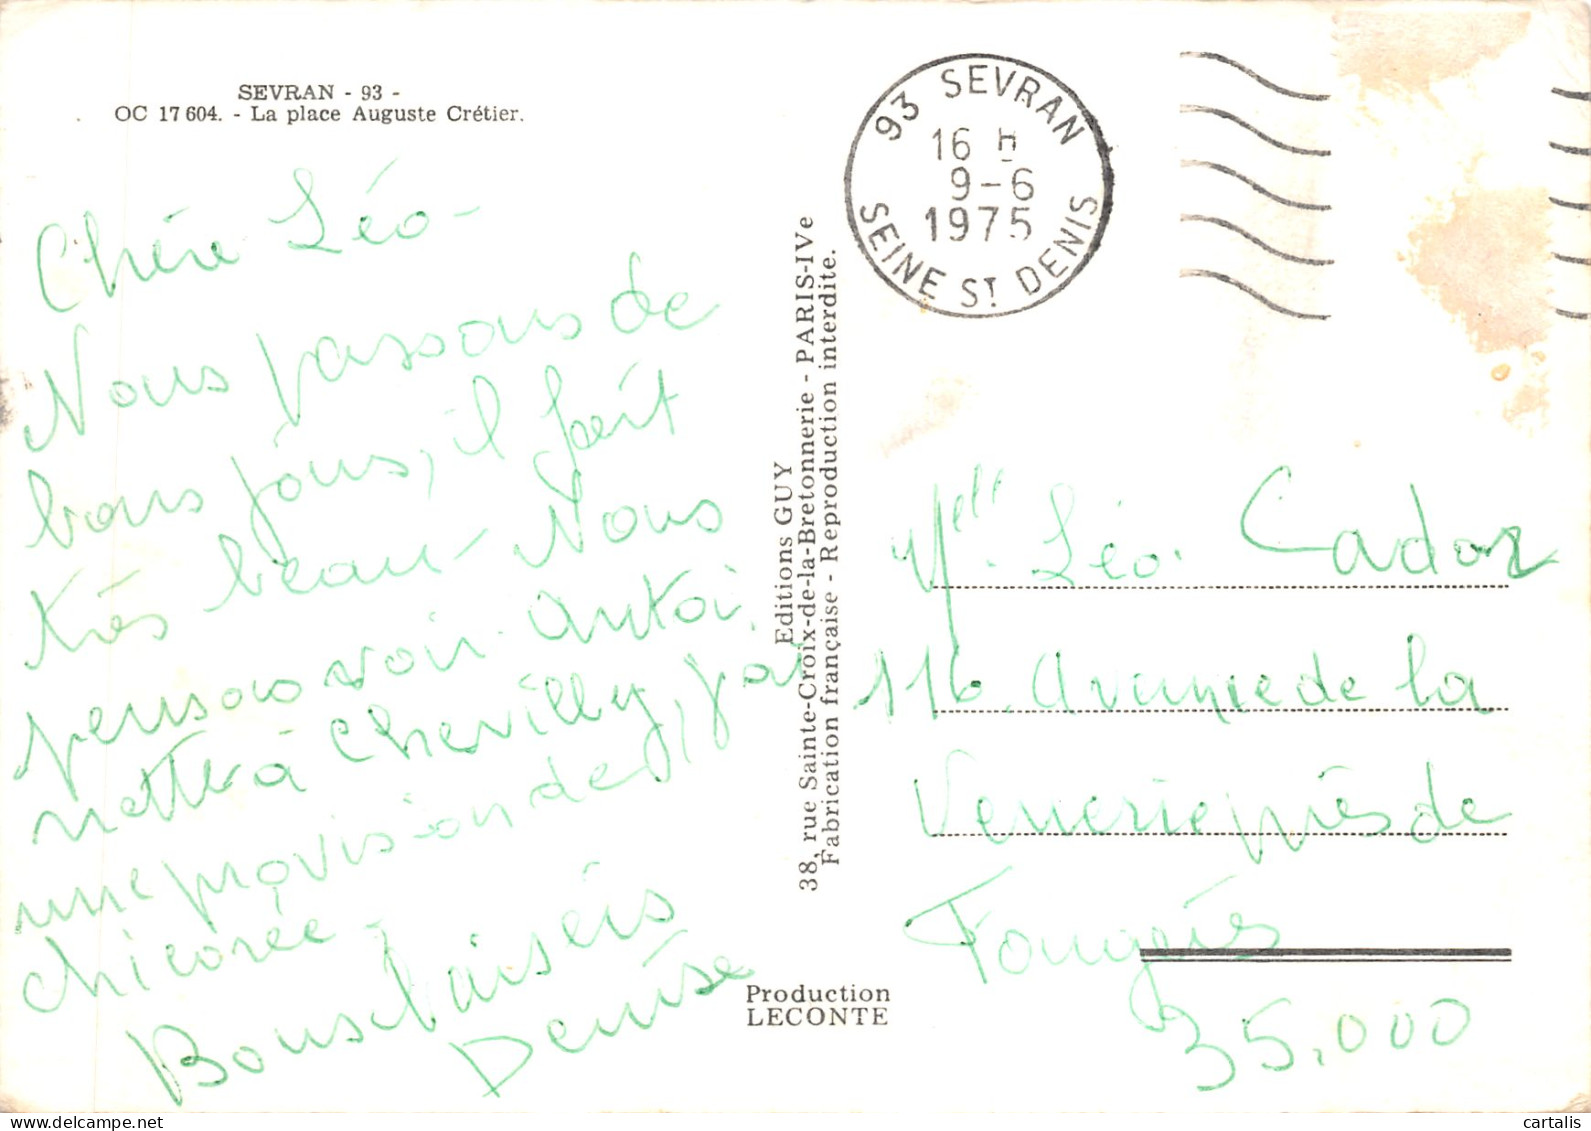 SEVRAN - 93 -
OC 17 604. - La place Auguste Crétier.
Chère Léo -
Nous passons de
bons jours, il fait
très beau - Nous
pensons voir Antoi
nette à Chevilly, j'ai
une provision de
chicorée -
Bons baisers
Denise
Editions GUY
38, rue Sainte-Croix-de-la-Bretonnerie - PARIS-IVe
Fabrication française - Reproduction interdite.
Production
LECONTE
93 SEVRAN
16 H
9-6
1975
SEINE ST DENIS
Melle Léo Cador
116. Avenue de la
Verrerie près de
Fougères
35.000
cartalis